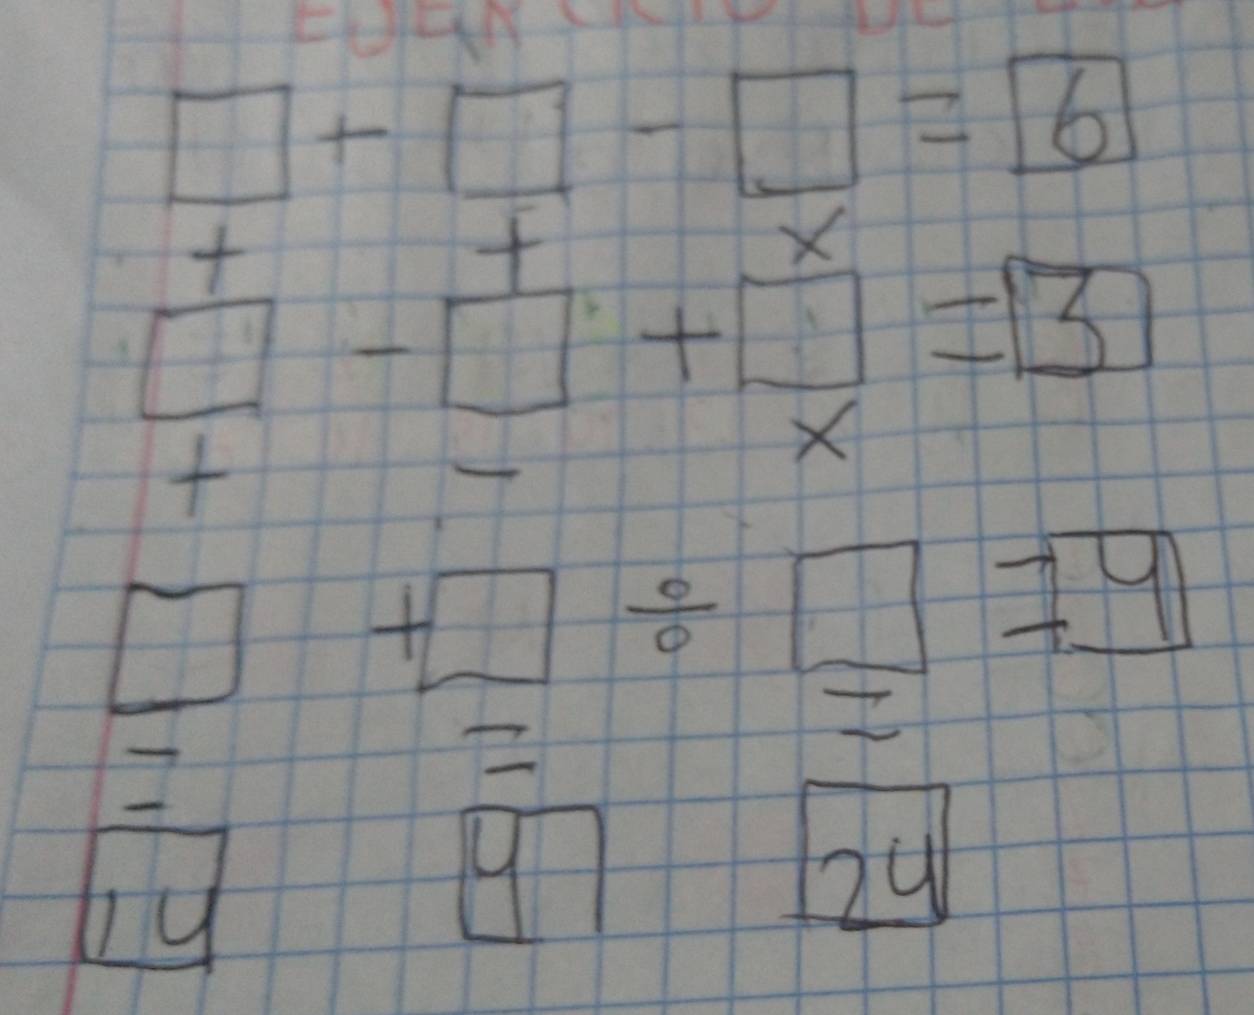 EJERCICIO DE
□ + □ - □ = 6
+ + ×
□ - □ + □ = 3
+ - ×
□ + □ ÷ □ = 4
= = =
14 4 24